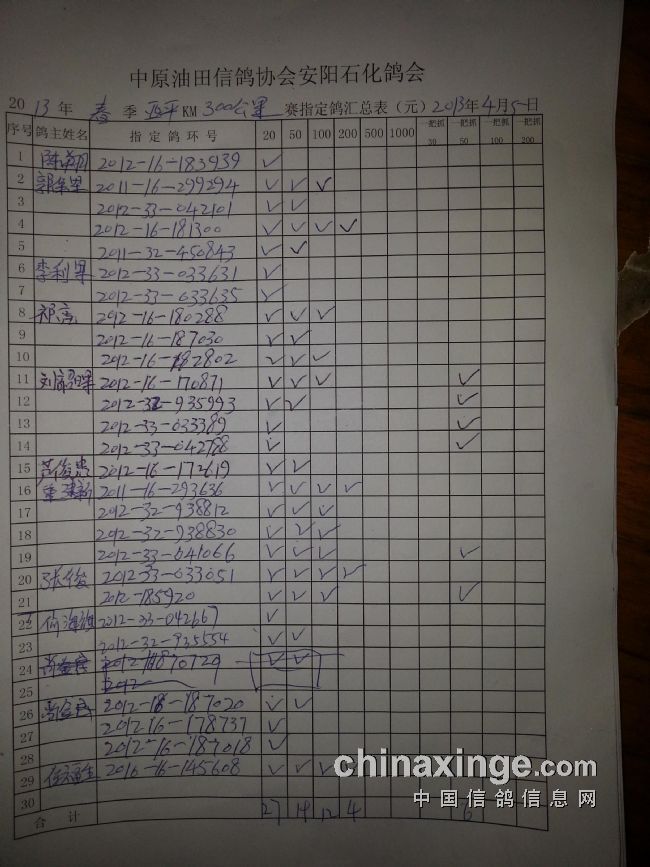 中原油田信鸽协会安阳石化鸽会
2013年 春 季 西平 KM 300公里 赛指定鸽汇总表（元）2013年4月5日
序号 鸽主姓名 指定鸽环号 20 50 100 200 500 1000 一把抓30 一把抓50 一把抓100 一把抓200
1 2012-16-183939 ✓
2 2011-16-299294 ✓ ✓ ✓
3 2012-33-042101 ✓ ✓
4 2012-16-181300 ✓ ✓ ✓ ✓
5 2011-32-450843 ✓ ✓
6 李利军 2012-33-033631 ✓
7 2012-33-033635 ✓
8 祁亮 2012-16-180288 ✓ ✓ ✓
9 2012-16-187030 ✓ ✓
10 2012-16-182802 ✓ ✓ ✓
11 2012-16-170871 ✓ ✓ ✓ ✓
12 2012-32-935993 ✓ ✓ ✓
13 2012-33-033389 ✓ ✓
14 2012-33-042788 ✓ ✓
15 芦俊贵 2012-16-172619 ✓ ✓
16 2011-16-293636 ✓ ✓ ✓ ✓
17 2012-32-938812 ✓ ✓ ✓
18 2012-32-938830 ✓ ✓ ✓
19 2012-33-041066 ✓ ✓ ✓ ✓
20 张俊 2012-33-033051 ✓ ✓ ✓ ✓
21 2012-185920 ✓ ✓ ✓ ✓
22 2012-33-042667 ✓
23 2012-32-935554 ✓ ✓
24 ✓ ✓
25 2012
26 2012-16-187020 ✓ ✓
27 2012-16-178737 ✓
28 2012-16-187018 ✓
29 任福生 2010-16-145608 ✓ ✓ ✓ ✓
30
合 计 27 19 12 4 6
chinaxinge.com
中国信鸽信息网